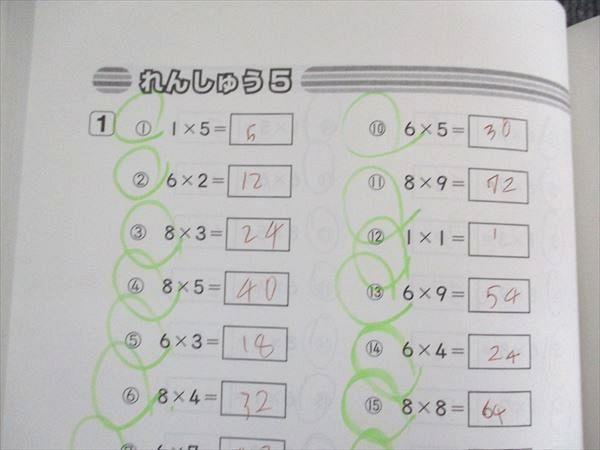 れんしゅう5
1
① 1×5= 5
② 6×2= 12
③ 8×3= 24
④ 8×5= 40
⑤ 6×3= 18
⑥ 8×4= 32
⑩ 6×5= 30
⑪ 8×9= 72
⑫ 1×1= 1
⑬ 6×9= 54
⑭ 6×4= 24
⑮ 8×8= 64